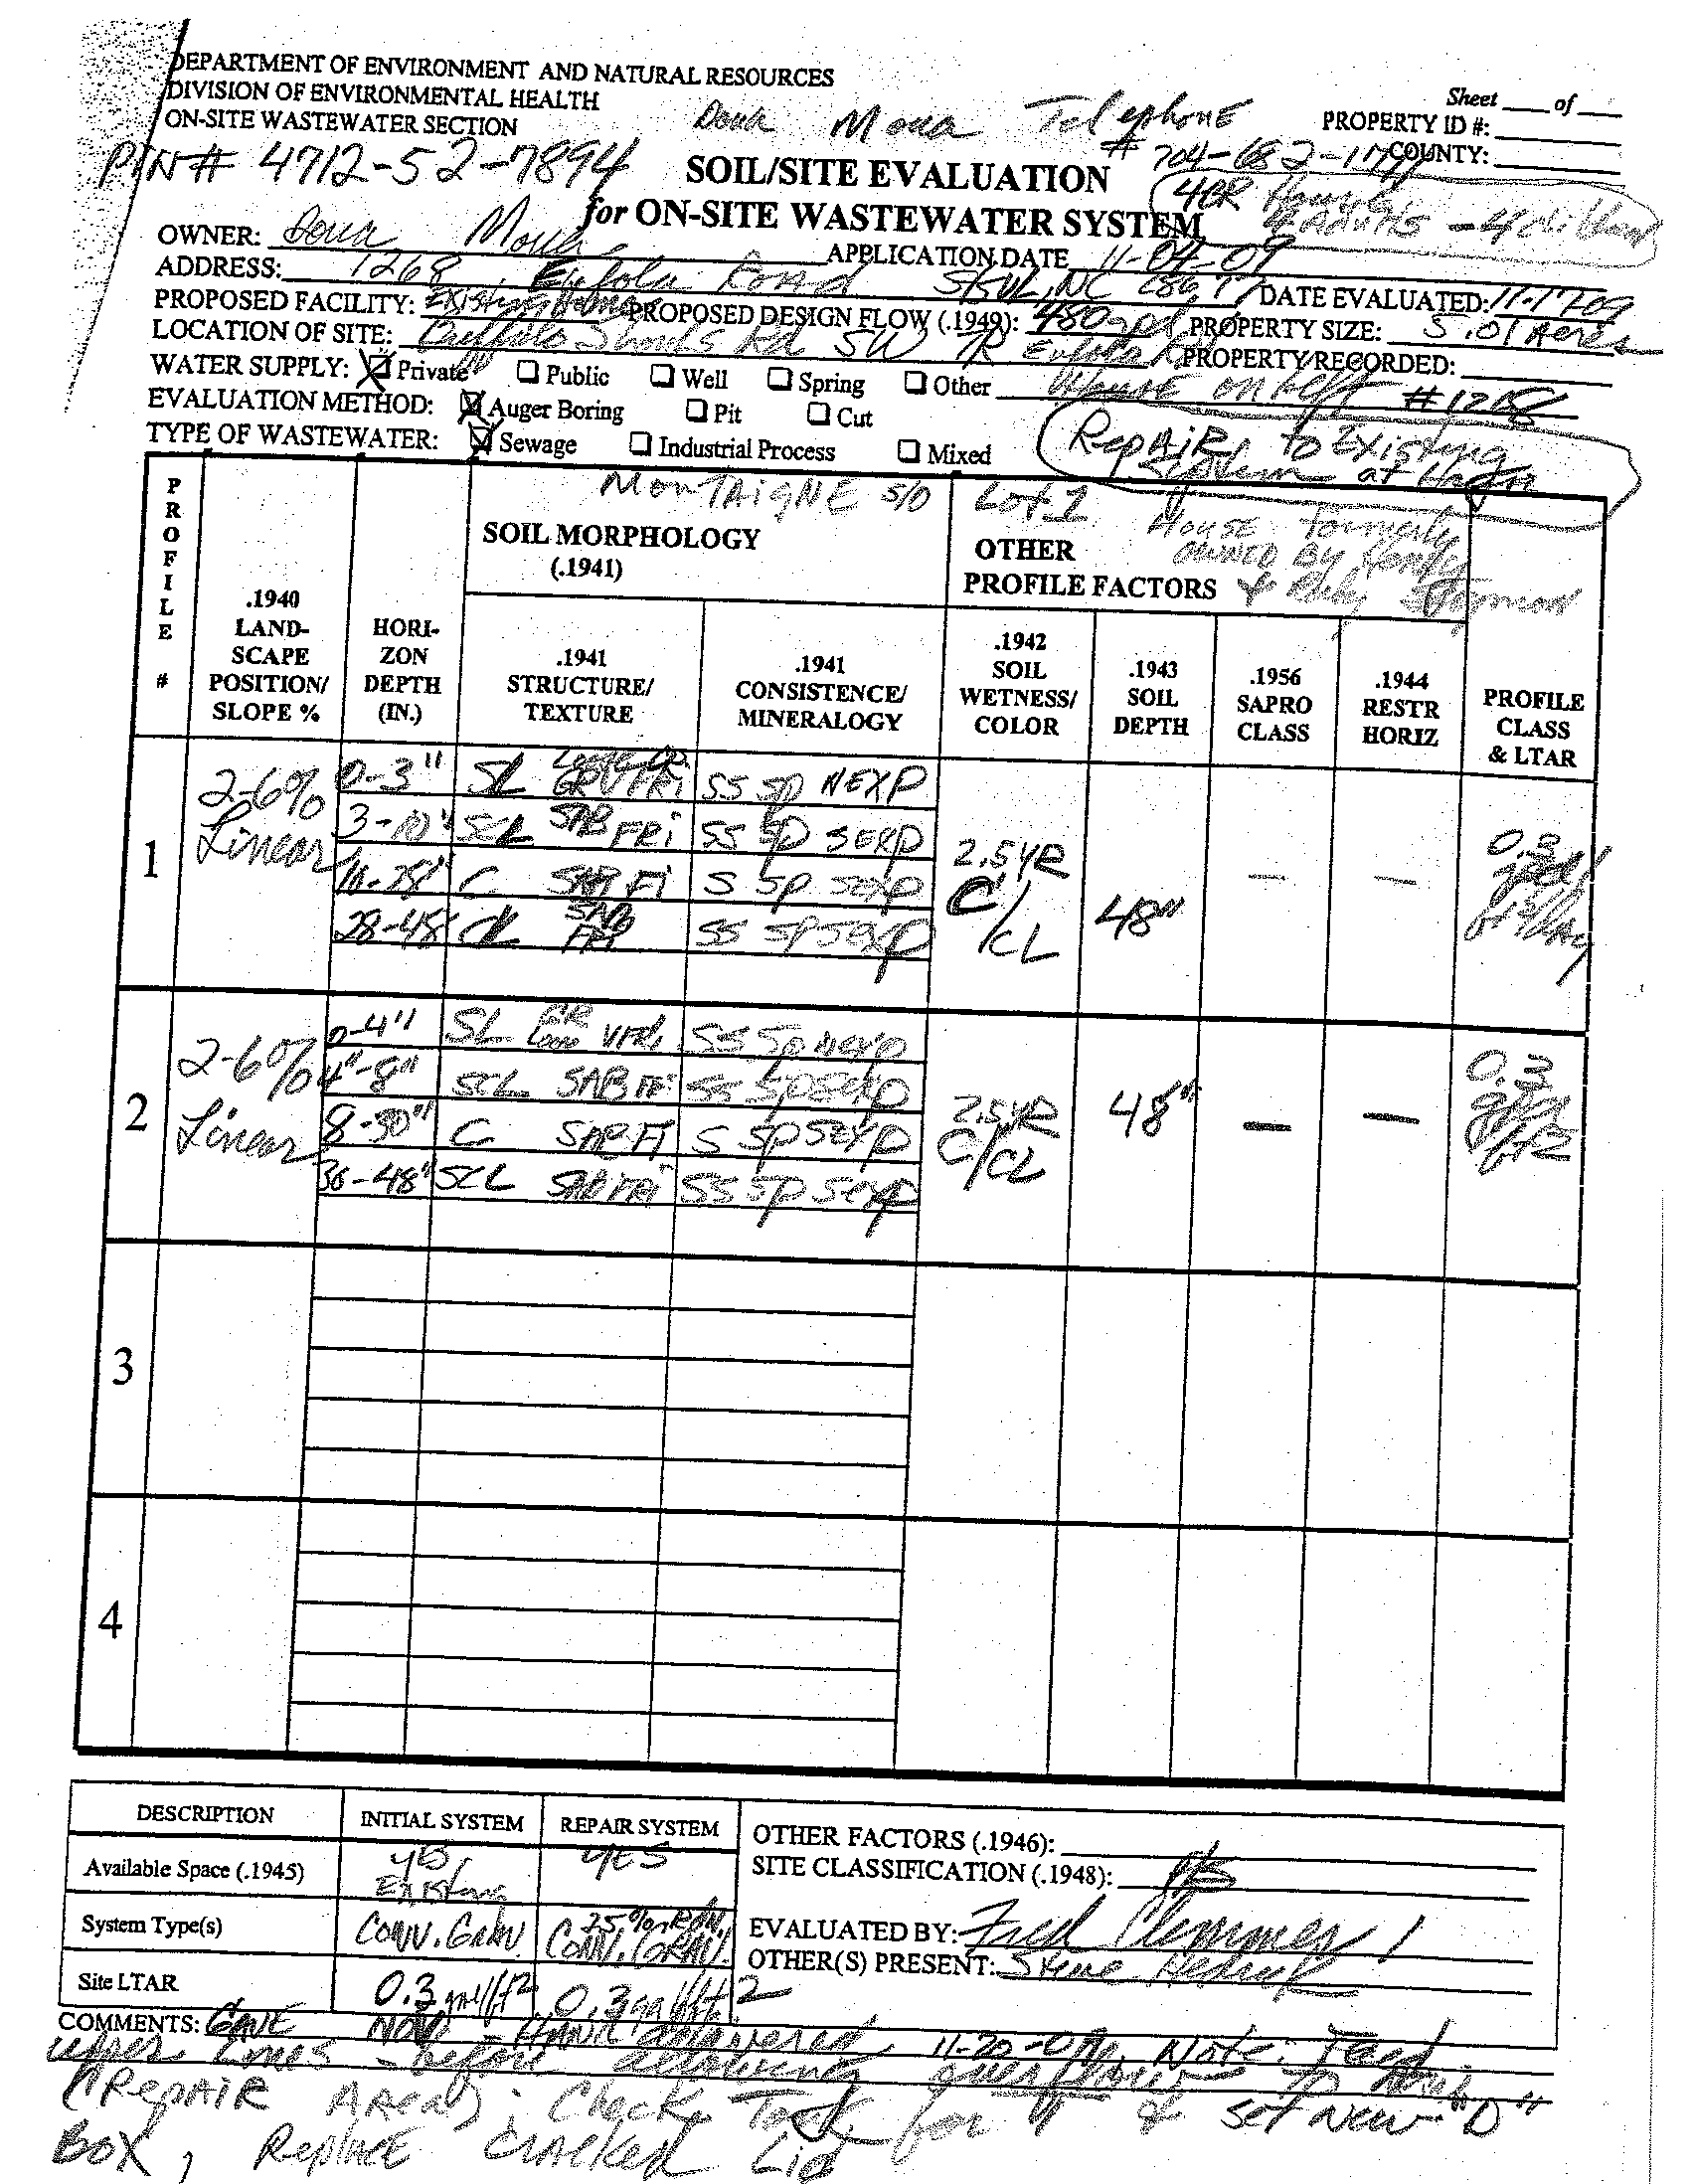 DEPARTMENT OF ENVIRONMENT AND NATURAL RESOURCES
DIVISION OF ENVIRONMENTAL HEALTH
ON-SITE WASTEWATER SECTION
Sheet ___ of ___
PROPERTY ID #:
COUNTY:
Telephone
# 704-
PIN# 4712-52-7894
SOIL/SITE EVALUATION
for ON-SITE WASTEWATER SYSTEM
OWNER:
APPLICATION DATE 11-04-09
ADDRESS: 1268 Eufola Road
PROPOSED FACILITY: Existing Home PROPOSED DESIGN FLOW (.1949): 480 gpd DATE EVALUATED: 11-17-09
LOCATION OF SITE: Buffalo Shoals Rd SW TR Eufola PROPERTY SIZE: 5.01 Acres
PROPERTY RECORDED:
WATER SUPPLY: Private Public Well Spring Other House on left
EVALUATION METHOD: Auger Boring Pit Cut
TYPE OF WASTEWATER: Sewage Industrial Process Mixed
Repair to Existing
System at
MONTAIGNE S/D Lot 1
House formerly
owned By
&
PROFILE #
.1940 LAND-SCAPE POSITION/ SLOPE %
HORI-ZON DEPTH (IN.)
SOIL MORPHOLOGY (.1941)
.1941 STRUCTURE/ TEXTURE
.1941 CONSISTENCE/ MINERALOGY
OTHER PROFILE FACTORS
.1942 SOIL WETNESS/ COLOR
.1943 SOIL DEPTH
.1956 SAPRO CLASS
.1944 RESTR HORIZ
PROFILE CLASS & LTAR
1
2-6% Linear
0-3" SL GR VFRI SS SP NEXP
3-10" SCL SAB FRI SS SP SEXP
10-28" C SAB FI S SP SEXP
28-48 CL SAB FRI SS SP SEXP
2.5YR C/CL
48"
— —
0.3
2
2-6% Linear
0-4" SL GR VFRI SS SP NEXP
4"-8" SCL SAB SS SP SEXP
8-30" C SAB FI S SP SEXP
-48" SCL SAB FRI SS SP SEXP
2.5YR C/CL
48"
— —
0.3
3
4
DESCRIPTION INITIAL SYSTEM REPAIR SYSTEM
Available Space (.1945) yes, Existing yes
System Type(s) CONV. GRAV. 25% CONV. GRAV.
Site LTAR 0.3 gal/ft2 0.3 gal/ft2
OTHER FACTORS (.1946):
SITE CLASSIFICATION (.1948): PS
EVALUATED BY: Fred
OTHER(S) PRESENT: Steve
COMMENTS: GAVE NOV - HAND delivered 11-20-09. Note: Feed
upper Lines - before allowing overflow to
(REPAIR Area); Check Tank for & set New "D"
BOX, Replace cracked Lid